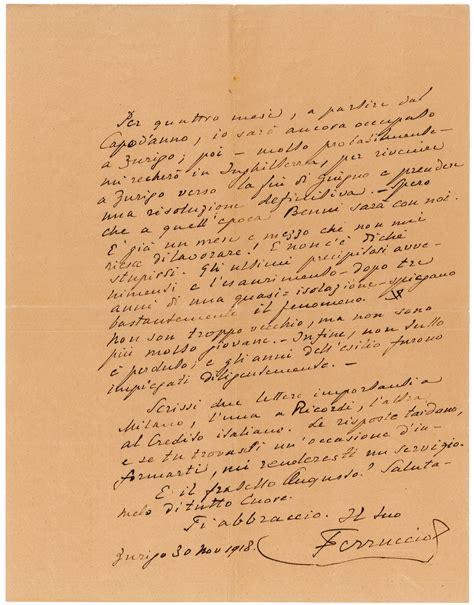 Per quattro mesi, a partire dal
Capodanno, io sarò ancora occupato
a Zurigo; poi - molto probabilmente -
mi recherò in Inghilterra, per rivenire
a Zurigo verso la fin di Giugno e prender
una risoluzione definitiva. - Spero
che a quell'epoca Benni sarà con noi.
È già un mese e mezzo che non mi
riesce di lavorare! E non c'è di che
stupirsi. Gli ultimi precipitosi avve-
nimenti e l'esaurimento - dopo tre
anni di una quasi-isolazione - spiegano
bastantemente il fenomeno.
non son troppo vecchio, ma non sono
più molto giovane. - Infine, non tutto
è perduto; e gli anni dell'esilio furono
impiegati diligentemente. -
Scrissi due lettere importanti a
Milano, l'una a Ricordi, l'altra
al Credito italiano. Le risposte tardano,
e se tu trovasti un'occasione d'in-
formarti, mi renderesti un servizio.
E il fratello Augusto? Saluta-
melo di tutto cuore.
Ti abbraccio. Il suo
Zurigo 30 Nov 1918. Ferruccio